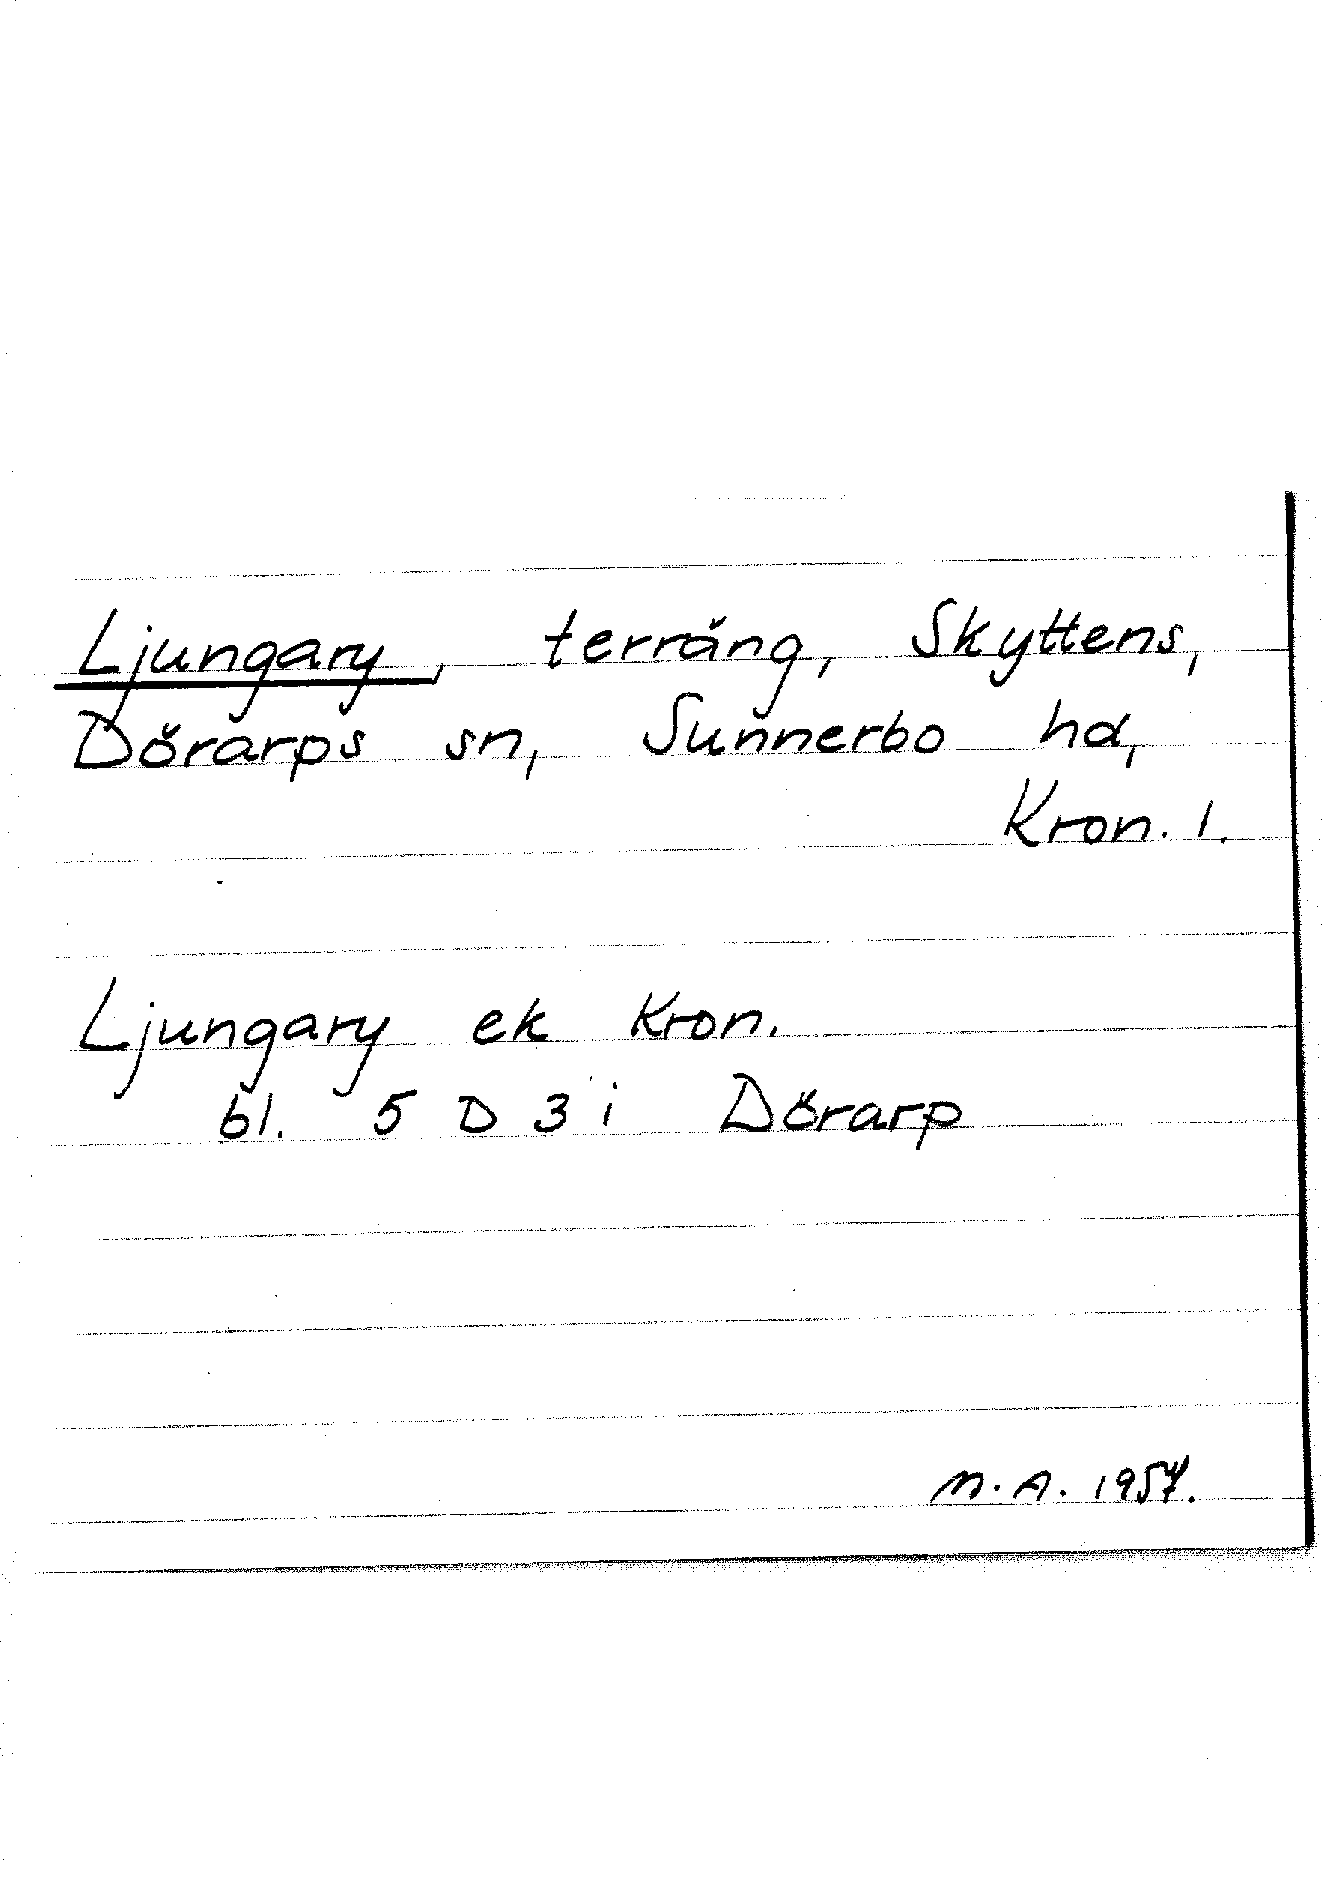 Ljungary, terräng, Skyttens,
Dörarps sn, Sunnerbo hd,
Kron. l.
Ljungary ek Kron.
bl. 5 D 3 i Dörarp
M.A. 1957.